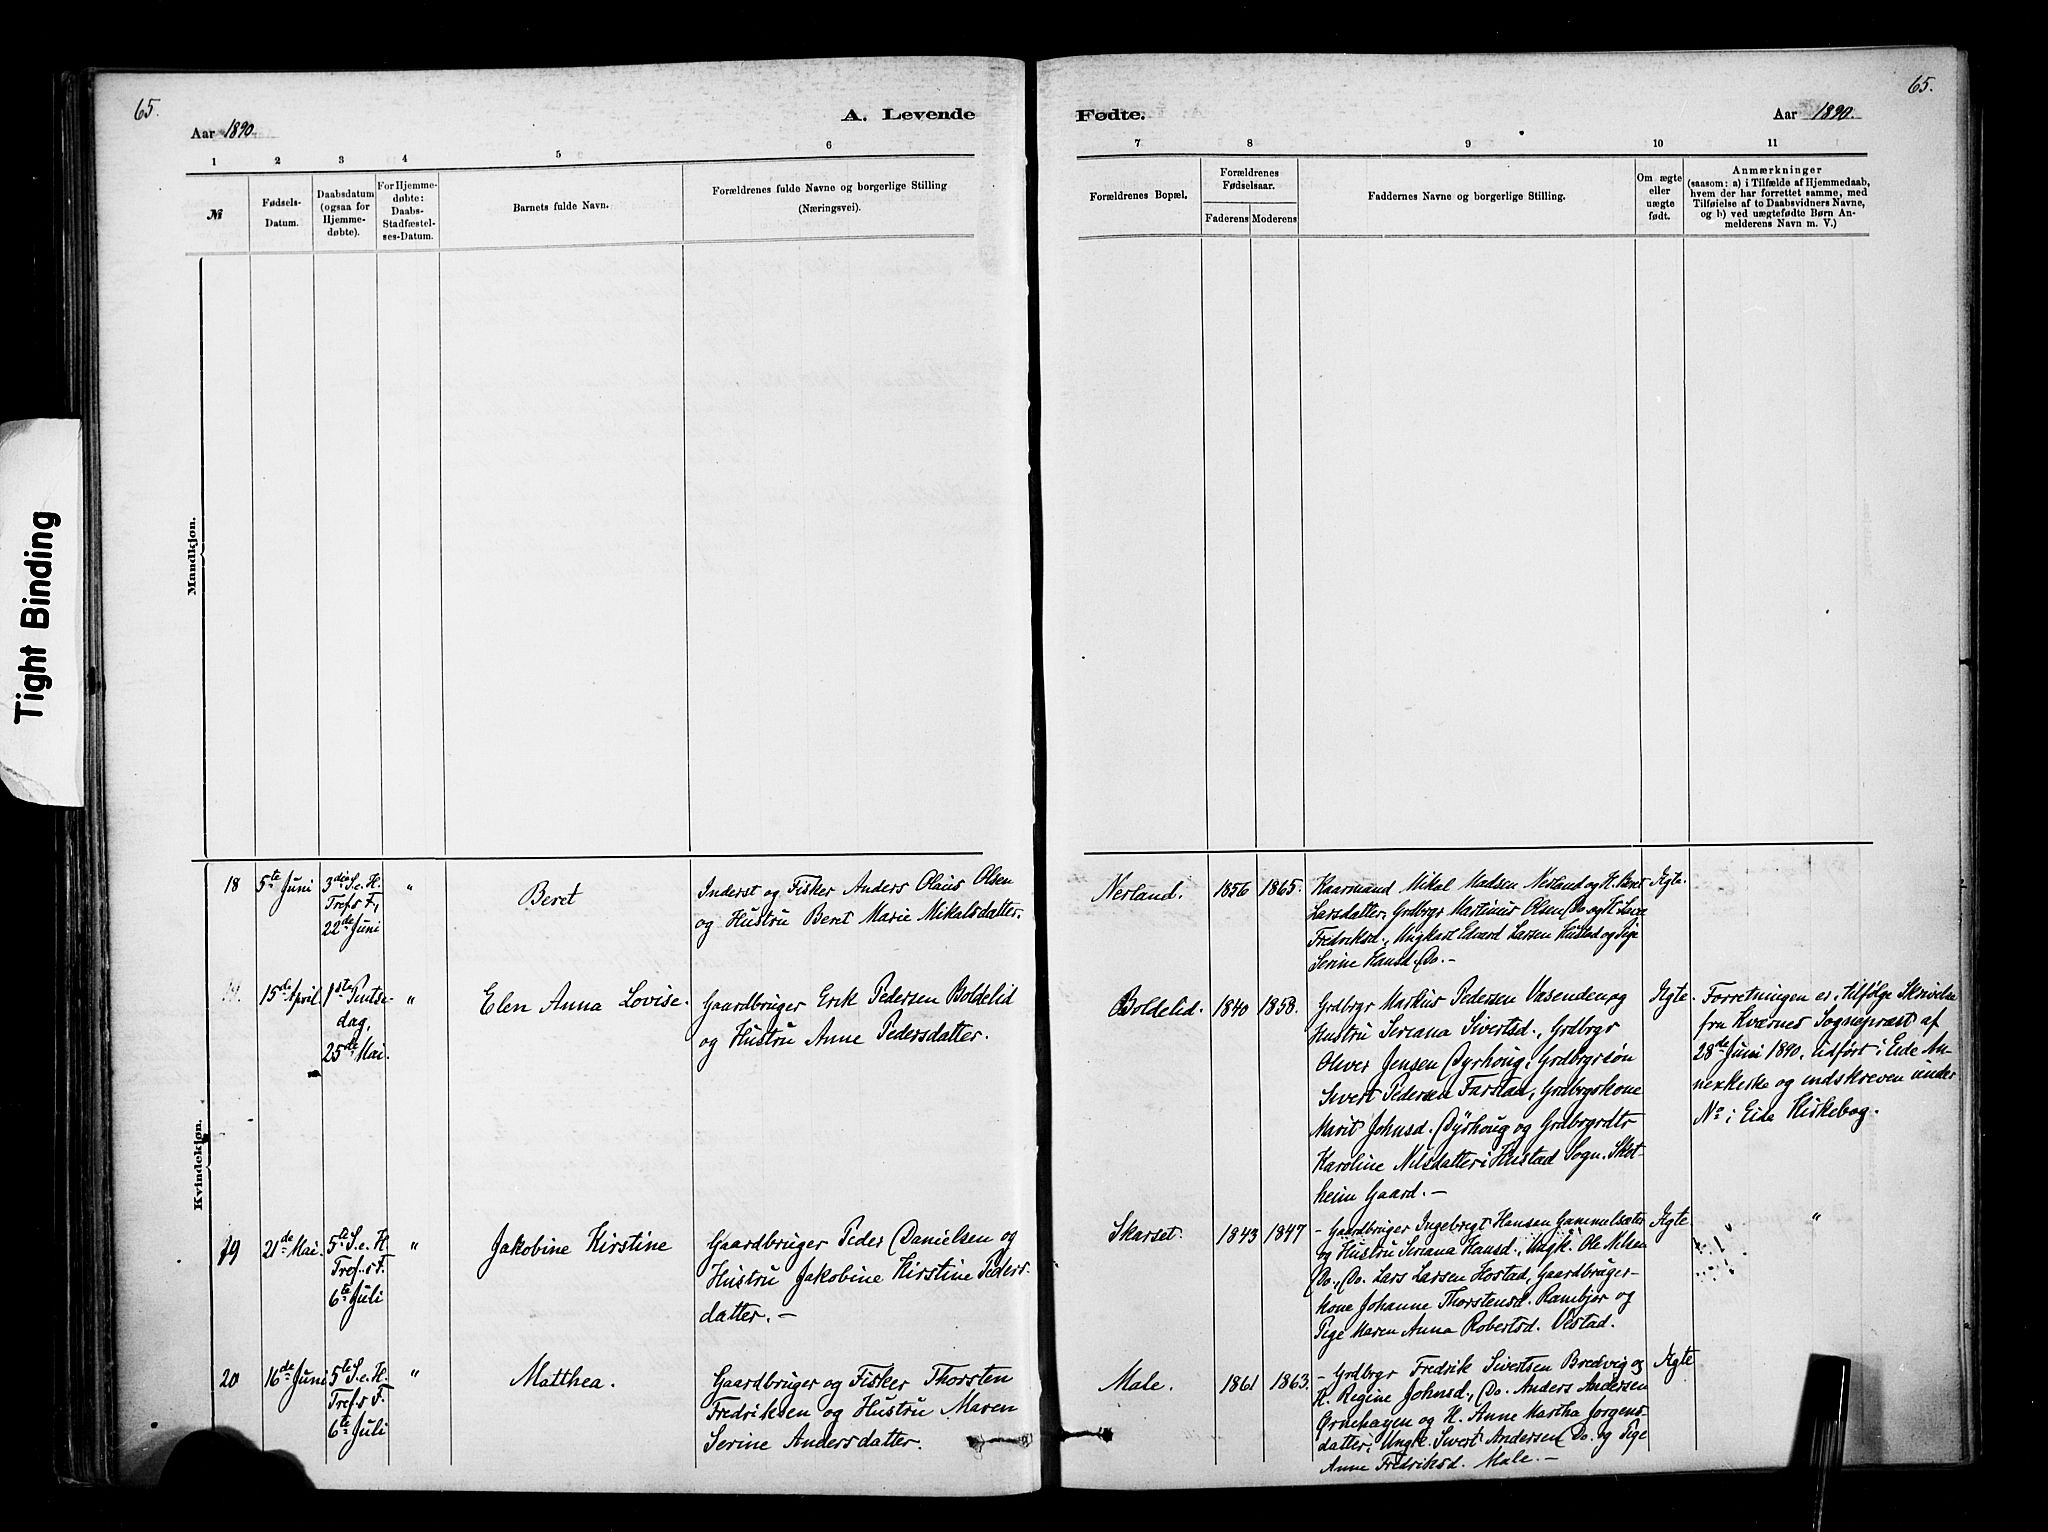 65.
65.
Aar 1890.
A. Levende
Fødte.
Aar 1890.
1
2
3
4
5
6
7
8
9
10
11
№
Fødsels-
Datum.
Daabsdatum
(ogsaa for
Hjemme-
døbte).
For Hjemme-
døbte:
Daabs-
Stadfæstel-
ses-Datum.
Barnets fulde Navn.
Forældrenes fulde Navne og borgerlige Stilling
(Næringsvei).
Forældrenes Bopæl.
Forældrenes
Fødselsaar.
Faderens
Moderens
Faddernes Navne og borgerlige Stilling.
Om ægte
eller
uægte
født.
Anmærkninger
(saasom: a) i Tilfælde af Hjemmedaab,
hvem der har forrettet samme, med
Tilføielse af to Daabsvidners Navne,
og b) ved uægtefødte Børn An-
melderens Navn m. V.)
Tight Binding
Mandkjøn.
Kvindekjøn.
18
5te Juni
3die S. e. H.
Tref.s F,
22de Juni
"
Beret
Inderst og Fisker Anders Olaus Olsen
og Hustru Beret Marie Mikalsdatter.
Nerland.
1856
1865.
Kaarmand Mikal Madsen Nerland og H. Beret
Larsdatter, Grdbrgr Martinus Olsen Do og H.
Fredriksd., Ungkarl Edvard Larsen Hustad og Pige
Serine Hansd. Do. –
Ægte.
15de April
1ste Pintse-
dag,
25de Mai.
"
Elen Anna Lovise.
Gaardbruger Erik Pedersen Boldelid
og Hustru Anne Pedersdatter.
Boldelid.
1840
1858.
Grdbrgr Markus Pedersen Vasenden og
Hustru Seriana Sivertsd., Grdbrgr
Oliver Jensen Dyrhoug, Grdbrgrsøn
Sivert Pedersen Farstad, Grdbrgskone
Marit Johnsd. Dyrhoug og Grdbrgrdtr
Karoline Nilsdatter i Hustad Sogn. Skot-
heim Gaard. –
Ægte.
Forretningen er, tilfølge Skrivelse
fra Kværnes Sognepræst af
28de Juni 1890, udført i Eide An-
nexkirke og indskreven under
No i Eide Kirkebog.
19
21de Mai.
5te S. e. H.
Tref.s F.
6te Juli
"
Jakobine Kirstine
Gaardbruger Peder Danielsen og
Hustru Jakobine Kirstine Peders-
datter. –
Skarset.
1843
1847
– Gaardbruger Ingebrigt Hansen Gammelsæter
og Hustru Seriana Hansd., Ungk. Ole Nilsen
Do., Do. Lars Larsen Hostad, Gaardbruger-
kone Johanne Thorstensd. Rambjør og
Pige Maren Anna Robertsd. Vestad.
Ægte
"
20
16de Juni
5te S. e. H.
Tref.s F.
6te Juli
"
Matthea.
Gaardbruger og Fisker Thorsten
Fredriksen og Hustru Maren
Serine Andersdatter.
Male.
1861
1863.
– Grdbrgr Fredrik Sivertsen Bredvig og
H. Regine Johnsd., Do. Anders Andersen
Ørnehaugen og H. Anne Martha Jørgens-
datter, Ungk. Sivert Andersen Do. og Pige
Anne Fredriksd. Male. –
Ægte